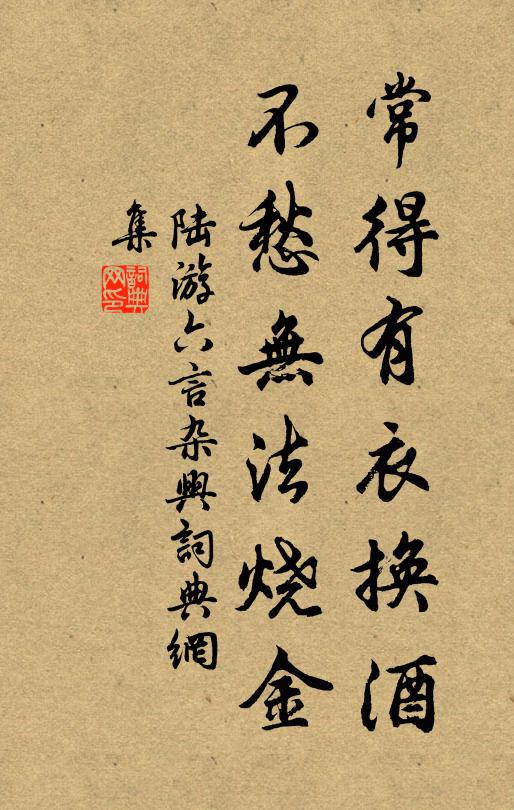 常得有衣换酒
不愁無法烧金
陆游六言杂興詞典網
集
詞典
网印